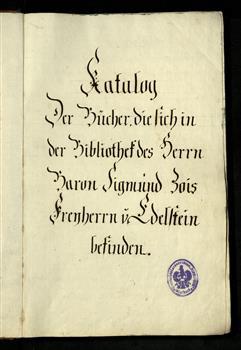 Katalog
Der Bücher, die sich in
der Bibliothek des Herrn
Baron Sigmund Zois
Freyherrn v. Edelstein
befinden.